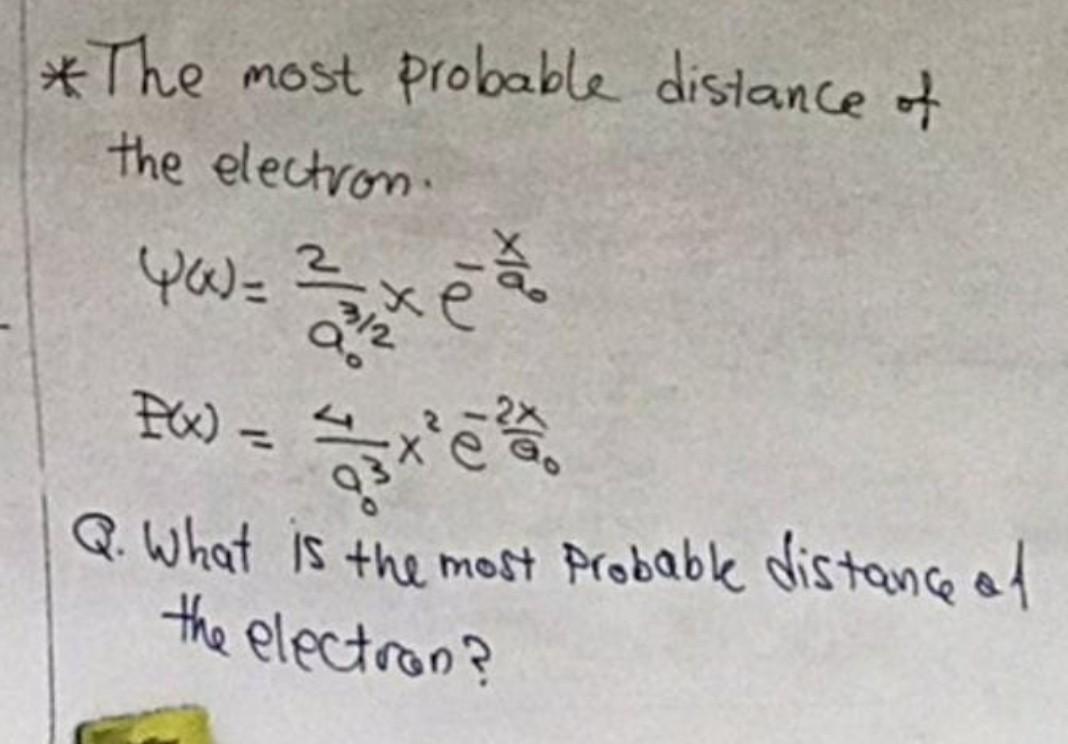 *The most probable distance of
the electron.
ψ(x) = 2/a₀^(3/2) x e^(-x/a₀)
P(x) = 4/a₀³ x² e^(-2x/a₀)
Q. What is the most Probable distance of
the electron?